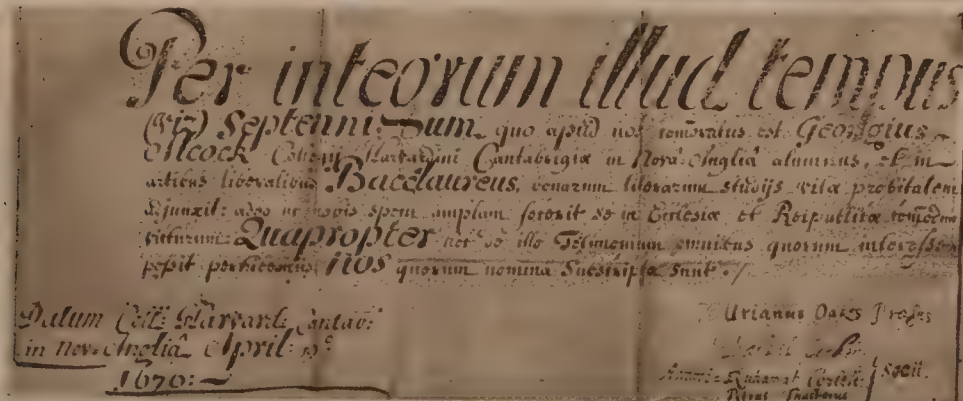 Per integrum illud tempus
(viz) Septennij: Dum quo apud nos commoratus est Georgius
Alcock Collegij Harvardini Cantabrigiæ in Nova Angliâ alumnus, et in
artibus liberalibus Baccalaureus, bonarum literarum studijs vitæ probitatem
adjunxit: adeo ut nobis spem amplam fecerit se in Ecclesiæ et Reipublicæ commodum
victurum: Quapropter hoc de illo Testimonium omnibus quorum interesse
possit perhibemus nos quorum nomina Subscripta sunt.
Datum Coll: Harvard: Cantab:
in Nov: Angliâ April:
1676:
Urianus Oakes Præses
Socii.